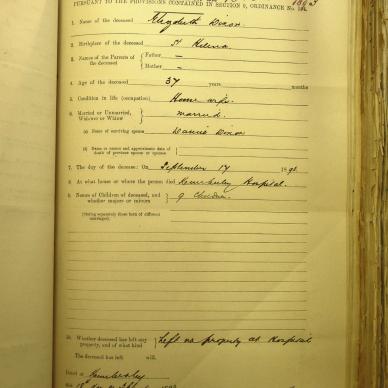 PURSUANT TO THE PROVISIONS CONTAINED IN SECTION 9, ORDINANCE No. 104.
1. Name of the deceased Elizabeth Dixon
2. Birthplace of the deceased St Helena
3. Names of the Parents of the deceased { Father –
Mother –
4. Age of the deceased 37 years months
5. Condition in life (occupation) House wife.
6. Married or Unmarried, Widower or Widow } married.
(a) Name of surviving spouse Dixon
(b) Name or names and approximate date of death of previous spouse or spouses
7. The day of the decease: On September 17 189
8. At what house or where the person died Kimberley Hospital.
9. Names of Children of deceased, and whether majors or minors } 9 Children.
(Stating separately those born of different marriages).
10. Whether deceased has left any property, and of what kind } Left no property at Hospital
The deceased has left will.
Dated at Kimberley
the 18th day of